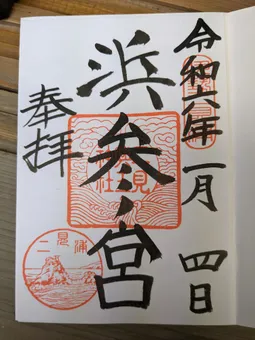 令和六年 一月 四日
浜参ノ宮
奉拝
二見浦